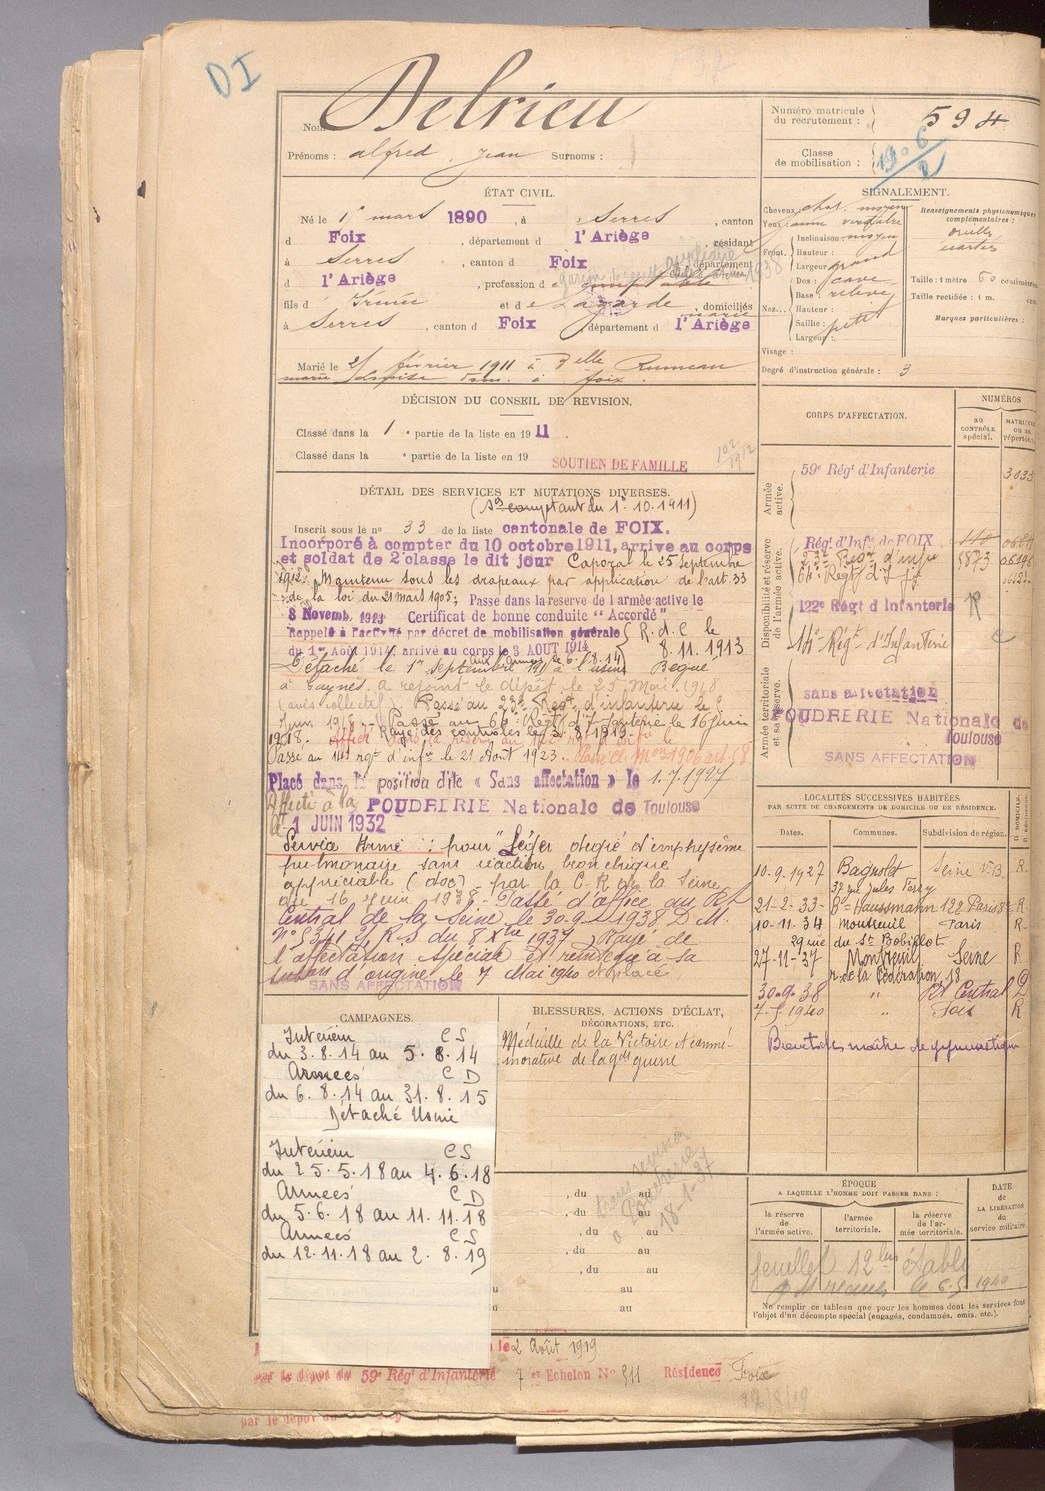 DI
Nom Delrieu
Prénoms : alfred Jean Surnoms :
Numéro matricule du recrutement : 594
Classe de mobilisation : 1906/2
ÉTAT CIVIL.
Né le 1er mars 1890, à Serres, canton
d Foix, département d l'Ariège, résidant
à Serres, canton d Foix, département
d l'Ariège, profession de comptable
fils d' Irénée et de Lagarde marie, domiciliés
à Serres, canton d Foix, département d l'Ariège
Marié le février 1911 à Delle Rumeau
marie Louise à foix
SIGNALEMENT.
Cheveux chat. moyen
Yeux verdâtre
Front. Inclinaison moyen
Hauteur :
Largeur grand
Nez... Dos : cave
Base : relevé
Hauteur :
Saillie : petit
Largeur :
Visage :
Renseignements physionomiques complémentaires :
oreilles écartées
Taille : 1 mètre 60 centimètres
Taille rectifiée : 1 m. cen
Marques particulières :
Degré d'instruction générale : 3
DÉCISION DU CONSEIL DE REVISION.
Classé dans la 1 e partie de la liste en 1911.
Classé dans la e partie de la liste en 19
SOUTIEN DE FAMILLE
DÉTAIL DES SERVICES ET MUTATIONS DIVERSES.
(Sce comptant du 1er.10.1911)
Inscrit sous le no 33 de la liste cantonale de FOIX.
Incorporé à compter du 10 octobre 1911, arrive au corps
et soldat de 2e classe le dit jour Caporal le 25 Septembre
1912. Maintenu sous les drapeaux par application de l'art. 33
de la loi du 21 mars 1905; Passe dans la reserve de l'armée active le
8 Novemb. 1913 Certificat de bonne conduite "Accordé"
Rappelé à l'activité par décret de mobilisation générale R.d.C le
du 1er Août 1914, arrivé au corps le 3 AOUT 1914 8.11.1913
aux armées le 6.8.14
Détaché le 1er septembre à l'usine Bègué
à a rejoint le dépôt le 25 Mai 1918
(avis collectif) Passé au 23e Regt d'infanterie le 5
Juin 1918. Passé au 6e Regt d'Infanterie le 16 Juin
1918. Rayé des contrôles le 3.8.1919
Affecté dans la réserve au
Passé au 14e regt d'infrie le 21 Août 1923. Classe de Mon 1906 art 58
Placé dans la position dite « Sans affectation » le 1.7.1927
Affecté à la POUDRERIE Nationale de Toulouse
le 1 JUIN 1932
Service Armé : pour "Léger degré d'emphysème
pulmonaire sans réaction bronchique
appréciable (doc) par la C.R de la Seine
du 16 Juin 1938. Passé d'office au Rt
Central de la Seine le 30.9.1938 D.M.
No 5341 2/R.S du 8 Xbre 1937 Rayé de
l'affectation spéciale et réintégré à sa
subon d'origine le 7 Mai 1940 et placé
SANS AFFECTATION
CORPS D'AFFECTATION.
NUMÉROS
AU CONTRÔLE spécial.
MATRICULE OU DU répertoire
Armée active.
59e Régt d'Infanterie 3035
Disponibilité et réserve de l'armée active.
Régt d'Infie de FOIX
23e Regt d'infie 5873
6e Regt d'Infie
122e Régt d'Infanterie R
14e Régt d'Infanterie
Armée territoriale et sa réserve.
sans affectation
POUDRERIE Nationale de Toulouse
SANS AFFECTATION
LOCALITÉS SUCCESSIVES HABITÉES
PAR SUITE DE CHANGEMENTS DE DOMICILE OU DE RÉSIDENCE.
Dates. Communes. Subdivision de région. D DOMICILE. R RÉSIDENCE.
10-9-1927 Bagnolet Seine V.B. R.
37 rue Jules Ferry
21-2-33 Bd Haussmann 122 Paris 8e R
10-11-34 Montreuil Paris R
29 rue du St Bobillot
27-11-37 Montreuil Seine R
r. de la Fédération, 18
30-9-38 " Rt Central D
7-5-1940 " Foix R
Brevet de maître de gymnastique
CAMPAGNES.
Intérieur C S
du 3.8.14 au 5.8.14
Armées C D
du 6.8.14 au 31.8.15
Détaché Usine
Intérieur C S
du 25.5.18 au 4.6.18
Armées C D
du 5.6.18 au 11.11.18
Armées C S
du 12.11.18 au 2.8.19
BLESSURES, ACTIONS D'ÉCLAT,
DÉCORATIONS, ETC.
Médaille de la Victoire Médcommé-
morative de la gde guerre
, du au
, du au
, du au
, du au
, du au
au
au
revision
Poudrerie
18-1-37
ÉPOQUE
A LAQUELLE L'HOMME DOIT PASSER DANS :
la réserve de l'armée active.
l'armée territoriale.
la réserve de l'armée territoriale.
DATE de LA LIBÉRATION du service militaire.
feuillet 12 bis établi
le 6.5 1940
Ne remplir ce tableau que pour les hommes dont les services font
l'objet d'un décompte spécial (engagés, condamnés, omis, etc.).
le 2 Août 1919
par le dépôt du 59e Régt d'Infanterie 7e Echelon No 311 Résidence Foix
par le dépôt du